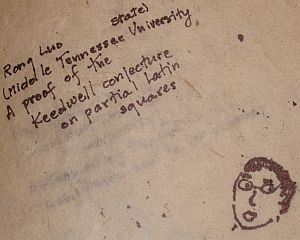 Rong Luo
State)
(Middle Tennessee University
A proof of the
Keedwell conjecture
on partial Latin
squares